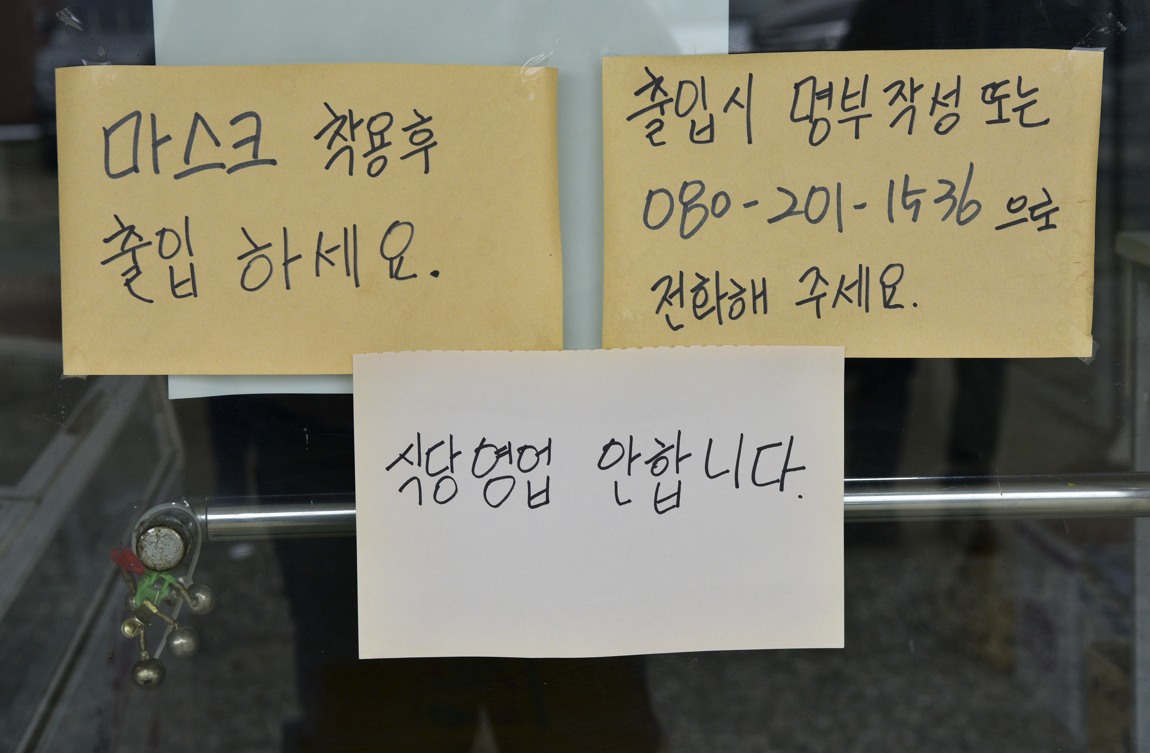 마스크 착용후
출입 하세요.
출입시 명부작성 또는
080-201-1536 으로
전화해 주세요.
식당영업 안합니다.